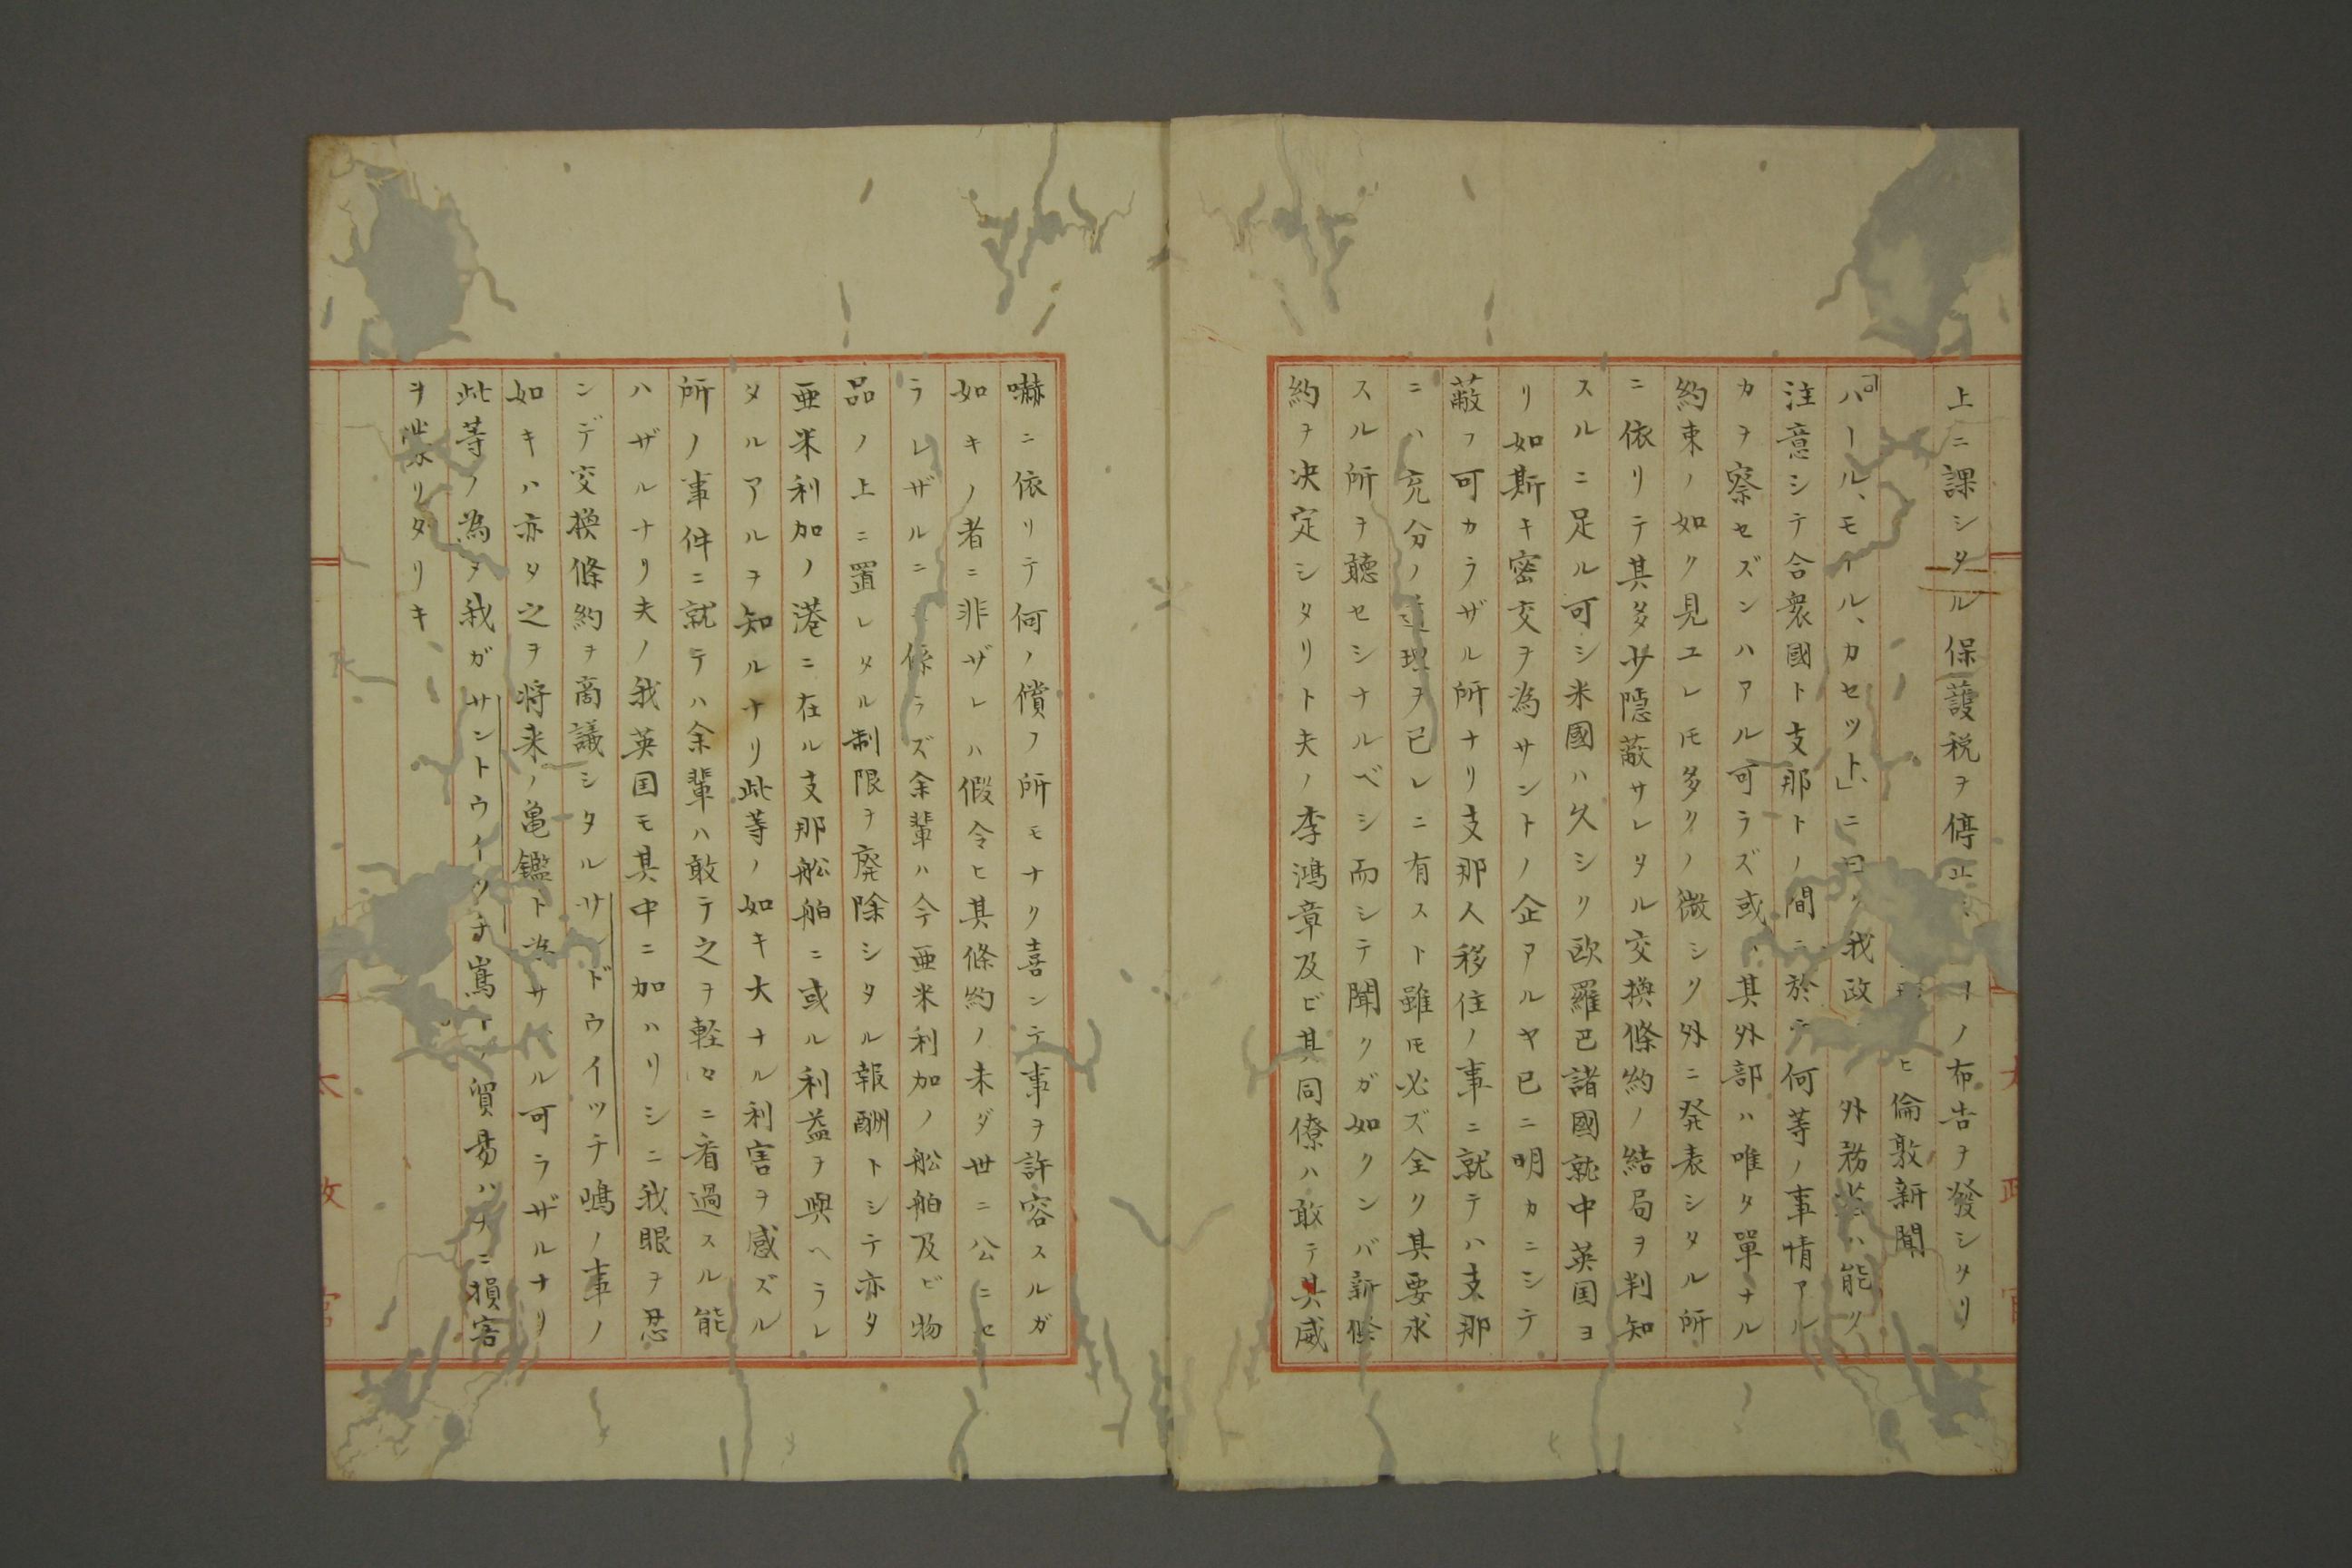 上ニ課シタル保護税ヲ停止ノ布告ヲ發シタリ
ヒ倫敦新聞
「パール、モイル、カセット」ニ曰ク我政外務ハ能ク
注意シテ合衆國ト支那トノ間ニ於テ何等ノ事情アル
カヲ察セズンハアル可ラズ或ハ其外部ハ唯タ單ナル
約束ノ如ク見ユレ𪜈多クノ微シク外ニ発表シタル所
ニ依リテ其多少隱蔽サレタル交換條約ノ結局ヲ判知
スルニ足ル可シ米國ハ久シク欧羅巴諸國就中英国ヨ
リ如斯キ密交ヲ為サントノ企アルヤ已ニ明カニシテ
蔽フ可カラザル所ナリ支那人移住ノ事ニ就テハ支那
ニハ充分ノ道理ヲ已レニ有スト雖𪜈必ズ全ク其要求
スル所ヲ聽セシナルベシ而シテ聞クガ如クンバ新條
約ヲ决定シタリト夫ノ李鴻章及ビ其同僚ハ敢テ其威
嚇ニ依リテ何ノ償フ所モナク喜ンテ事ヲ許容スルガ
如キノ者ニ非ザレハ假令ヒ其條約ノ未ダ世ニ公ニセ
ラレザルニ係ラズ余輩ハ今亜米利加ノ舩舶及ビ物
品ノ上ニ置レタル制限ヲ廃除シタル報酬トシテ亦タ
亜米利加ノ港ニ在ル支那舩舶ニ或ル利益ヲ與ヘラレ
タルアルヲ知ルナリ此等ノ如キ大ナル利害ヲ感ズル
所ノ事件ニ就テハ余輩ハ敢テ之ヲ軽々ニ看過スル能
ハザルナリ夫ノ我英国モ其中ニ加ハリシニ我眼ヲ忍
ンデ交換條約ヲ商議シタルサンドウイツチ嶋ノ事ノ
如キハ亦タ之ヲ将来ノ亀鑑ト為サヾル可ラザルナリ
此等ノ為ヲ我ガサントウイツチ嶌トノ貿易ハ大ニ損害
ヲ蒙リタリキ
太政官
太政官